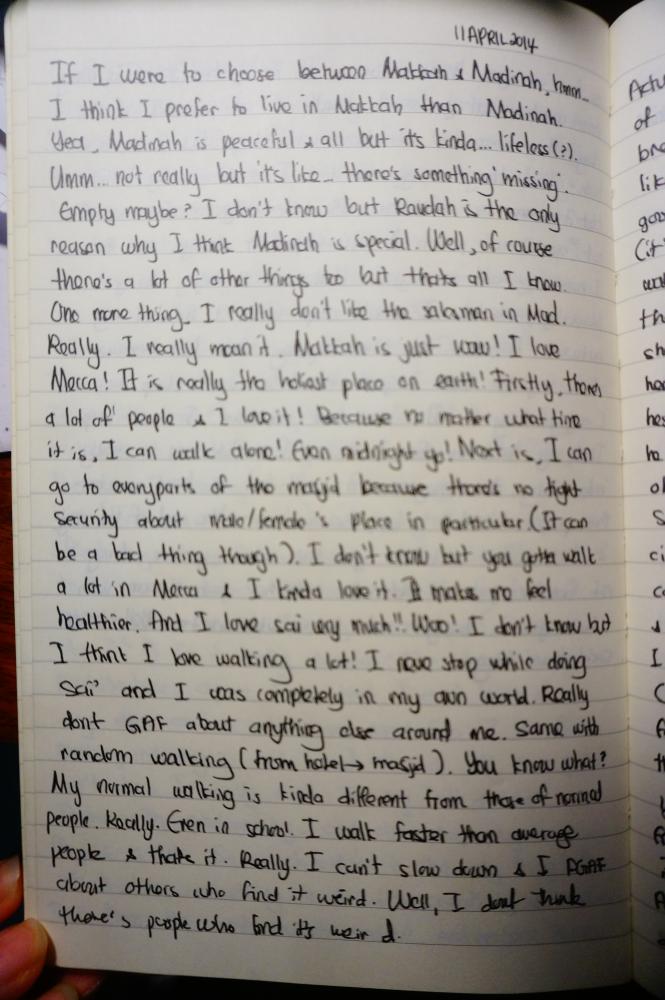 11 APRIL 2014
If I were to choose between Makkah & Madinah, hmm...
I think I prefer to live in Makkah than Madinah.
Yea, Madinah is peaceful & all but it's kinda... lifeless(?).
Umm... not really but it's like... there's something 'missing'.
Empty maybe? I don't know but Raudah is the only
reason why I think Madinah is special. Well, of course
there's a lot of other things too but thats all I know.
One more thing. I really don't like the salesman in Mad.
Really. I really mean it. Makkah is just wow! I love
Mecca! It is really the holiest place on earth! Firstly, there's
a lot of people & I love it! Because no matter what time
it is, I can walk alone! Even midnight yo! Next is, I can
go to everyparts of the masjid because there's no tight
security about male/female's place in particular (It can
be a bad thing though). I don't know but you gotta walk
a lot in Mecca & I kinda love it. It makes me feel
healthier. And I love sai very much!! Woo! I don't know but
I think I love walking a lot! I never stop while doing
Sai' and I was completely in my own world. Really
dont GAF about anything else around me. Same with
random walking (from hotel → masjid). You know what?
My normal walking is kinda different from those of normal
people. Really. Even in school. I walk faster than average
people & thats it. Really. I can't slow down & I DGAF
about others who find it weird. Well, I dont think
there's people who find it's weird.
Actu
of
bre
lik
(it
th
sh
he
ha
of
S
ci
c
&
I